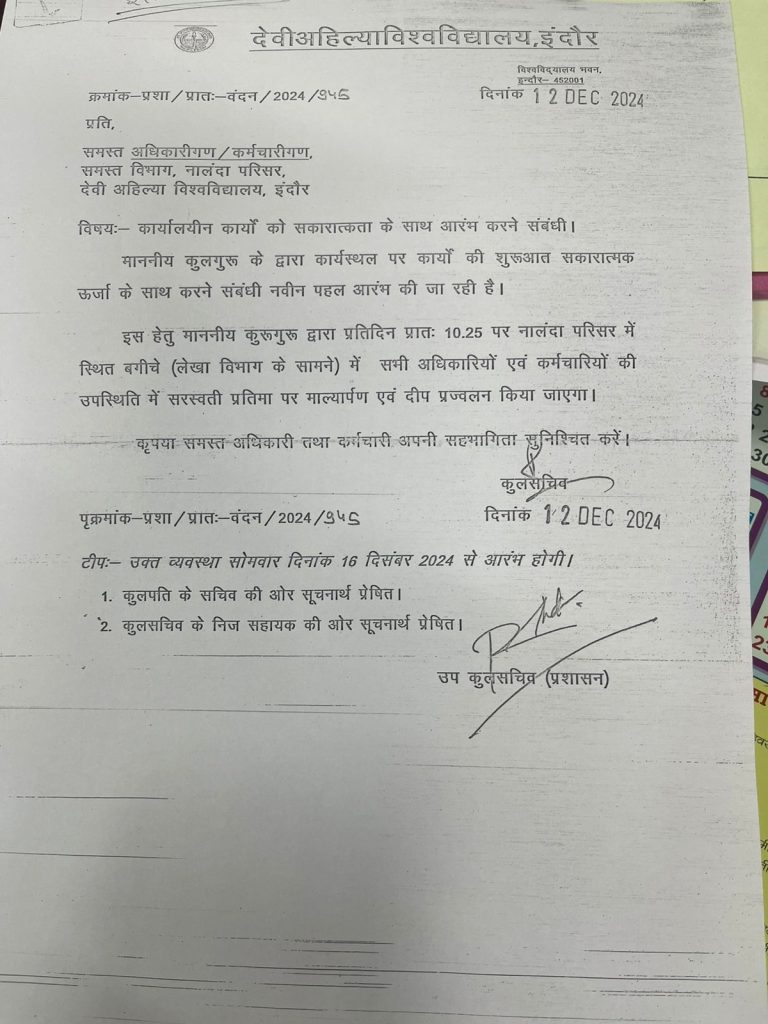 देवीअहिल्याविश्वविद्यालय,इंदौर
विश्वविद्यालय भवन,
इन्दौर– 452001
क्रमांक–प्रशा/प्रातः–वंदन/2024/945
दिनांक 12 DEC 2024
प्रति,
समस्त अधिकारीगण/कर्मचारीगण,
समस्त विभाग, नालंदा परिसर,
देवी अहिल्या विश्वविद्यालय, इंदौर
विषयः– कार्यालयीन कार्यों को सकारात्कता के साथ आरंभ करने संबंधी।
माननीय कुलगुरू के द्वारा कार्यस्थल पर कार्यों की शुरूआत सकारात्मक
ऊर्जा के साथ करने संबंधी नवीन पहल आरंभ की जा रही है।
इस हेतु माननीय कुरूगुरू द्वारा प्रतिदिन प्रातः 10.25 पर नालंदा परिसर में
स्थित बगीचे (लेखा विभाग के सामने) में सभी अधिकारियों एवं कर्मचारियों की
उपस्थिति में सरस्वती प्रतिमा पर माल्यार्पण एवं दीप प्रज्वलन किया जाएगा।
कृपया समस्त अधिकारी तथा कर्मचारी अपनी सहभागिता सुनिश्चित करें।
कुलसचिव
पृक्रमांक–प्रशा/प्रातः–वंदन/2024/945
दिनांक 12 DEC 2024
टीपः– उक्त व्यवस्था सोमवार दिनांक 16 दिसंबर 2024 से आरंभ होगी।
1. कुलपति के सचिव की ओर सूचनार्थ प्रेषित।
2. कुलसचिव के निज सहायक की ओर सूचनार्थ प्रेषित।
उप कुलसचिव (प्रशासन)